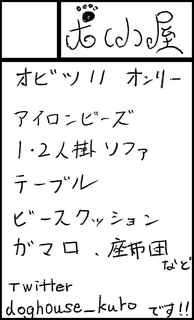 犬小屋
オビツ11 オンリー
アイロンビーズ
1・2人掛ソファ
テーブル
ビースクッション
ガマ口、座布団
など
Twitter
doghouse_kuro です!!